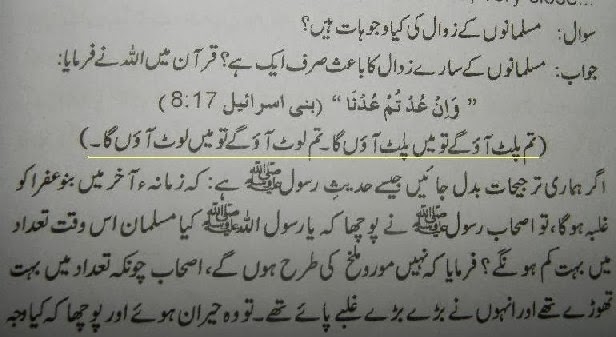 سوال: مسلمانوں کے زوال کی کیا وجوہات ہیں؟
جواب: مسلمانوں کے سارے زوال کا باعث صرف ایک ہے؟ قرآن میں اللہ نے فرمایا:
” وَاِنْ عُدْ تُمْ عُدْنَا “ (بنی اسرائیل 8:17)
(تم پلٹ آؤ گے تو میں پلٹ آؤں گا۔ تم لوٹ آؤ گے تو میں لوٹ آؤں گا۔)
اگر ہماری ترجیحات بدل جائیں جیسے حدیثِ رسول ﷺ ہے: کہ زمانہء آخر میں بنو عفرا کو
غلبہ ہوگا، تو اصحاب رسول ﷺ نے پوچھا کہ یا رسول اللہ ﷺ کیا مسلمان اس وقت تعداد
میں بہت کم ہونگے؟ فرمایا کہ نہیں مور و ملخ کی طرح ہوں گے، اصحاب چونکہ تعداد میں بہت
تھوڑے تھے اور انہوں نے بڑے بڑے غلبے پائے تھے۔ تو وہ حیران ہوئے اور پوچھا کہ کیا وجہ